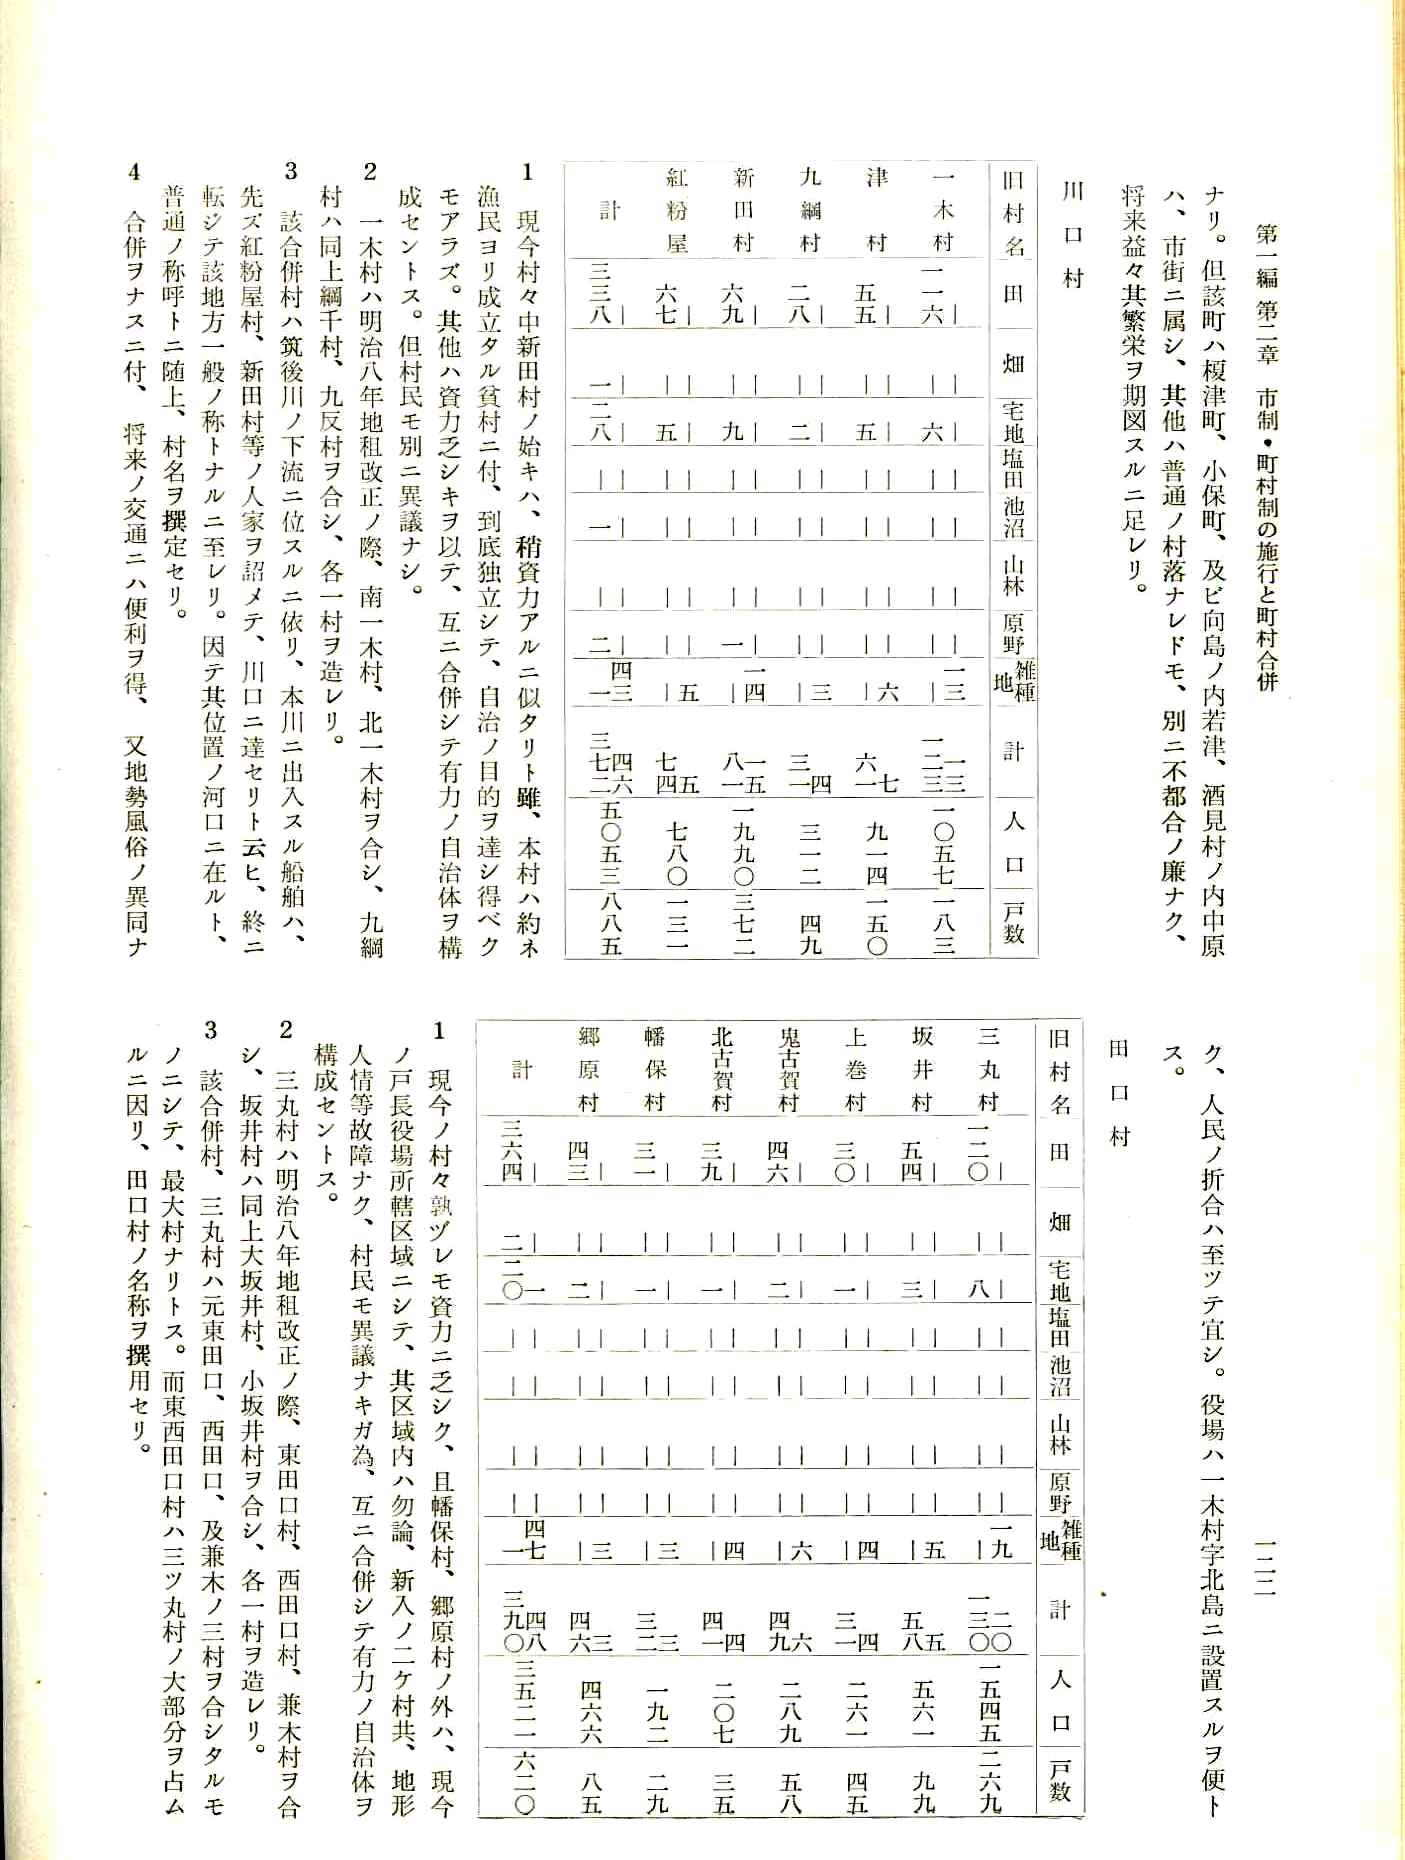 第一編 第二章 市制・町村制の施行と町村合併
一二二
ナリ。但該町ハ榎津町、小保町、及ビ向島ノ内若津、酒見村ノ内中原
ハ、市街ニ属シ、其他ハ普通ノ村落ナレドモ、別ニ不都合ノ廉ナク、
将来益々其繁栄ヲ期図スルニ足レリ。
川口村
旧村名 田 畑 宅地 塩田 池沼 山林 原野 雑種地 計 人口 戸数
一木村 ― 一一六 ― ― ― 六 ― ― ― ― ― ― ― ― 一三 ― 一三 一二三 一〇五七 一八三
津村 ― 五五 ― ― ― 五 ― ― ― ― ― ― ― ― 六 ― 七 六一 九一四 一五〇
九綱村 ― 二八 ― ― ― 二 ― ― ― ― ― ― ― ― 三 ― 四 三一 三一二 四九
新田村 ― 六九 ― ― ― 九 ― ― ― ― ― ― ― 一 一四 ― 一五 八一 一九九〇 三七二
紅粉屋 ― 六七 ― ― ― 五 ― ― ― ― ― ― ― ― 五 ― 五 七四 七八〇 一三一
計 ― 三三八 ― 一 ― 二八 ― ― ― 一 ― ― ― 二 四三 一 四六 三七二 五〇五三 八八五
1 現今村々中新田村ノ始キハ、稍資力アルニ似タリト雖、本村ハ約ネ
漁民ヨリ成立タル貧村ニ付、到底独立シテ、自治ノ目的ヲ達シ得ベク
モアラズ。其他ハ資力乏シキヲ以テ、互ニ合併シテ有力ノ自治体ヲ構
成セントス。但村民モ別ニ異議ナシ。
2 一木村ハ明治八年地租改正ノ際、南一木村、北一木村ヲ合シ、九綱
村ハ同上綱千村、九反村ヲ合シ、各一村ヲ造レリ。
3 該合併村ハ筑後川ノ下流ニ位スルニ依リ、本川ニ出入スル船舶ハ、
先ズ紅粉屋村、新田村等ノ人家ヲ詔メテ、川口ニ達セリト云ヒ、終ニ
転ジテ該地方一般ノ称トナルニ至レリ。因テ其位置ノ河口ニ在ルト、
普通ノ称呼トニ随上、村名ヲ撰定セリ。
4 合併ヲナスニ付、将来ノ交通ニハ便利ヲ得、又地勢風俗ノ異同ナ
ク、人民ノ折合ハ至ツテ宜シ。役場ハ一木村字北島ニ設置スルヲ便ト
ス。
田口村
旧村名 田 畑 宅地 塩田 池沼 山林 原野 雑種地 計 人口 戸数
三丸村 ― 一二〇 ― ― ― 八 ― ― ― ― ― ― ― ― 一九 ― 二〇 一三〇 一五四五 二六九
坂井村 ― 五四 ― ― ― 三 ― ― ― ― ― ― ― ― 五 ― 五 五八 五六一 九九
上巻村 ― 三〇 ― ― ― 一 ― ― ― ― ― ― ― ― 四 ― 四 三一 二六一 四五
鬼古賀村 ― 四六 ― ― ― 二 ― ― ― ― ― ― ― ― 六 ― 六 四九 二八九 五八
北古賀村 ― 三九 ― ― ― 一 ― ― ― ― ― ― ― ― 四 ― 四 四一 二〇七 三五
幡保村 ― 三一 ― ― ― 一 ― ― ― ― ― ― ― ― 三 ― 三 三二 一九二 二九
郷原村 ― 四三 ― ― ― 二 ― ― ― ― ― ― ― ― 三 ― 三 四六 四六六 八五
計 ― 三六四 ― 二 一 二〇 ― ― ― ― ― ― ― ― 四七 一 四八 三九〇 三五二一 六二〇
1 現今ノ村々孰ヅレモ資力ニ乏シク、且幡保村、郷原村ノ外ハ、現今
ノ戸長役場所轄区域ニシテ、其区域内ハ勿論、新入ノ二ケ村共、地形
人情等故障ナク、村民モ異議ナキガ為、互ニ合併シテ有力ノ自治体ヲ
構成セントス。
2 三丸村ハ明治八年地租改正ノ際、東田口村、西田口村、兼木村ヲ合
シ、坂井村ハ同上大坂井村、小坂井村ヲ合シ、各一村ヲ造レリ。
3 該合併村、三丸村ハ元東田口、西田口、及兼木ノ三村ヲ合シタルモ
ノニシテ、最大村ナリトス。而東西田口村ハ三ツ丸村ノ大部分ヲ占ム
ルニ因リ、田口村ノ名称ヲ撰用セリ。